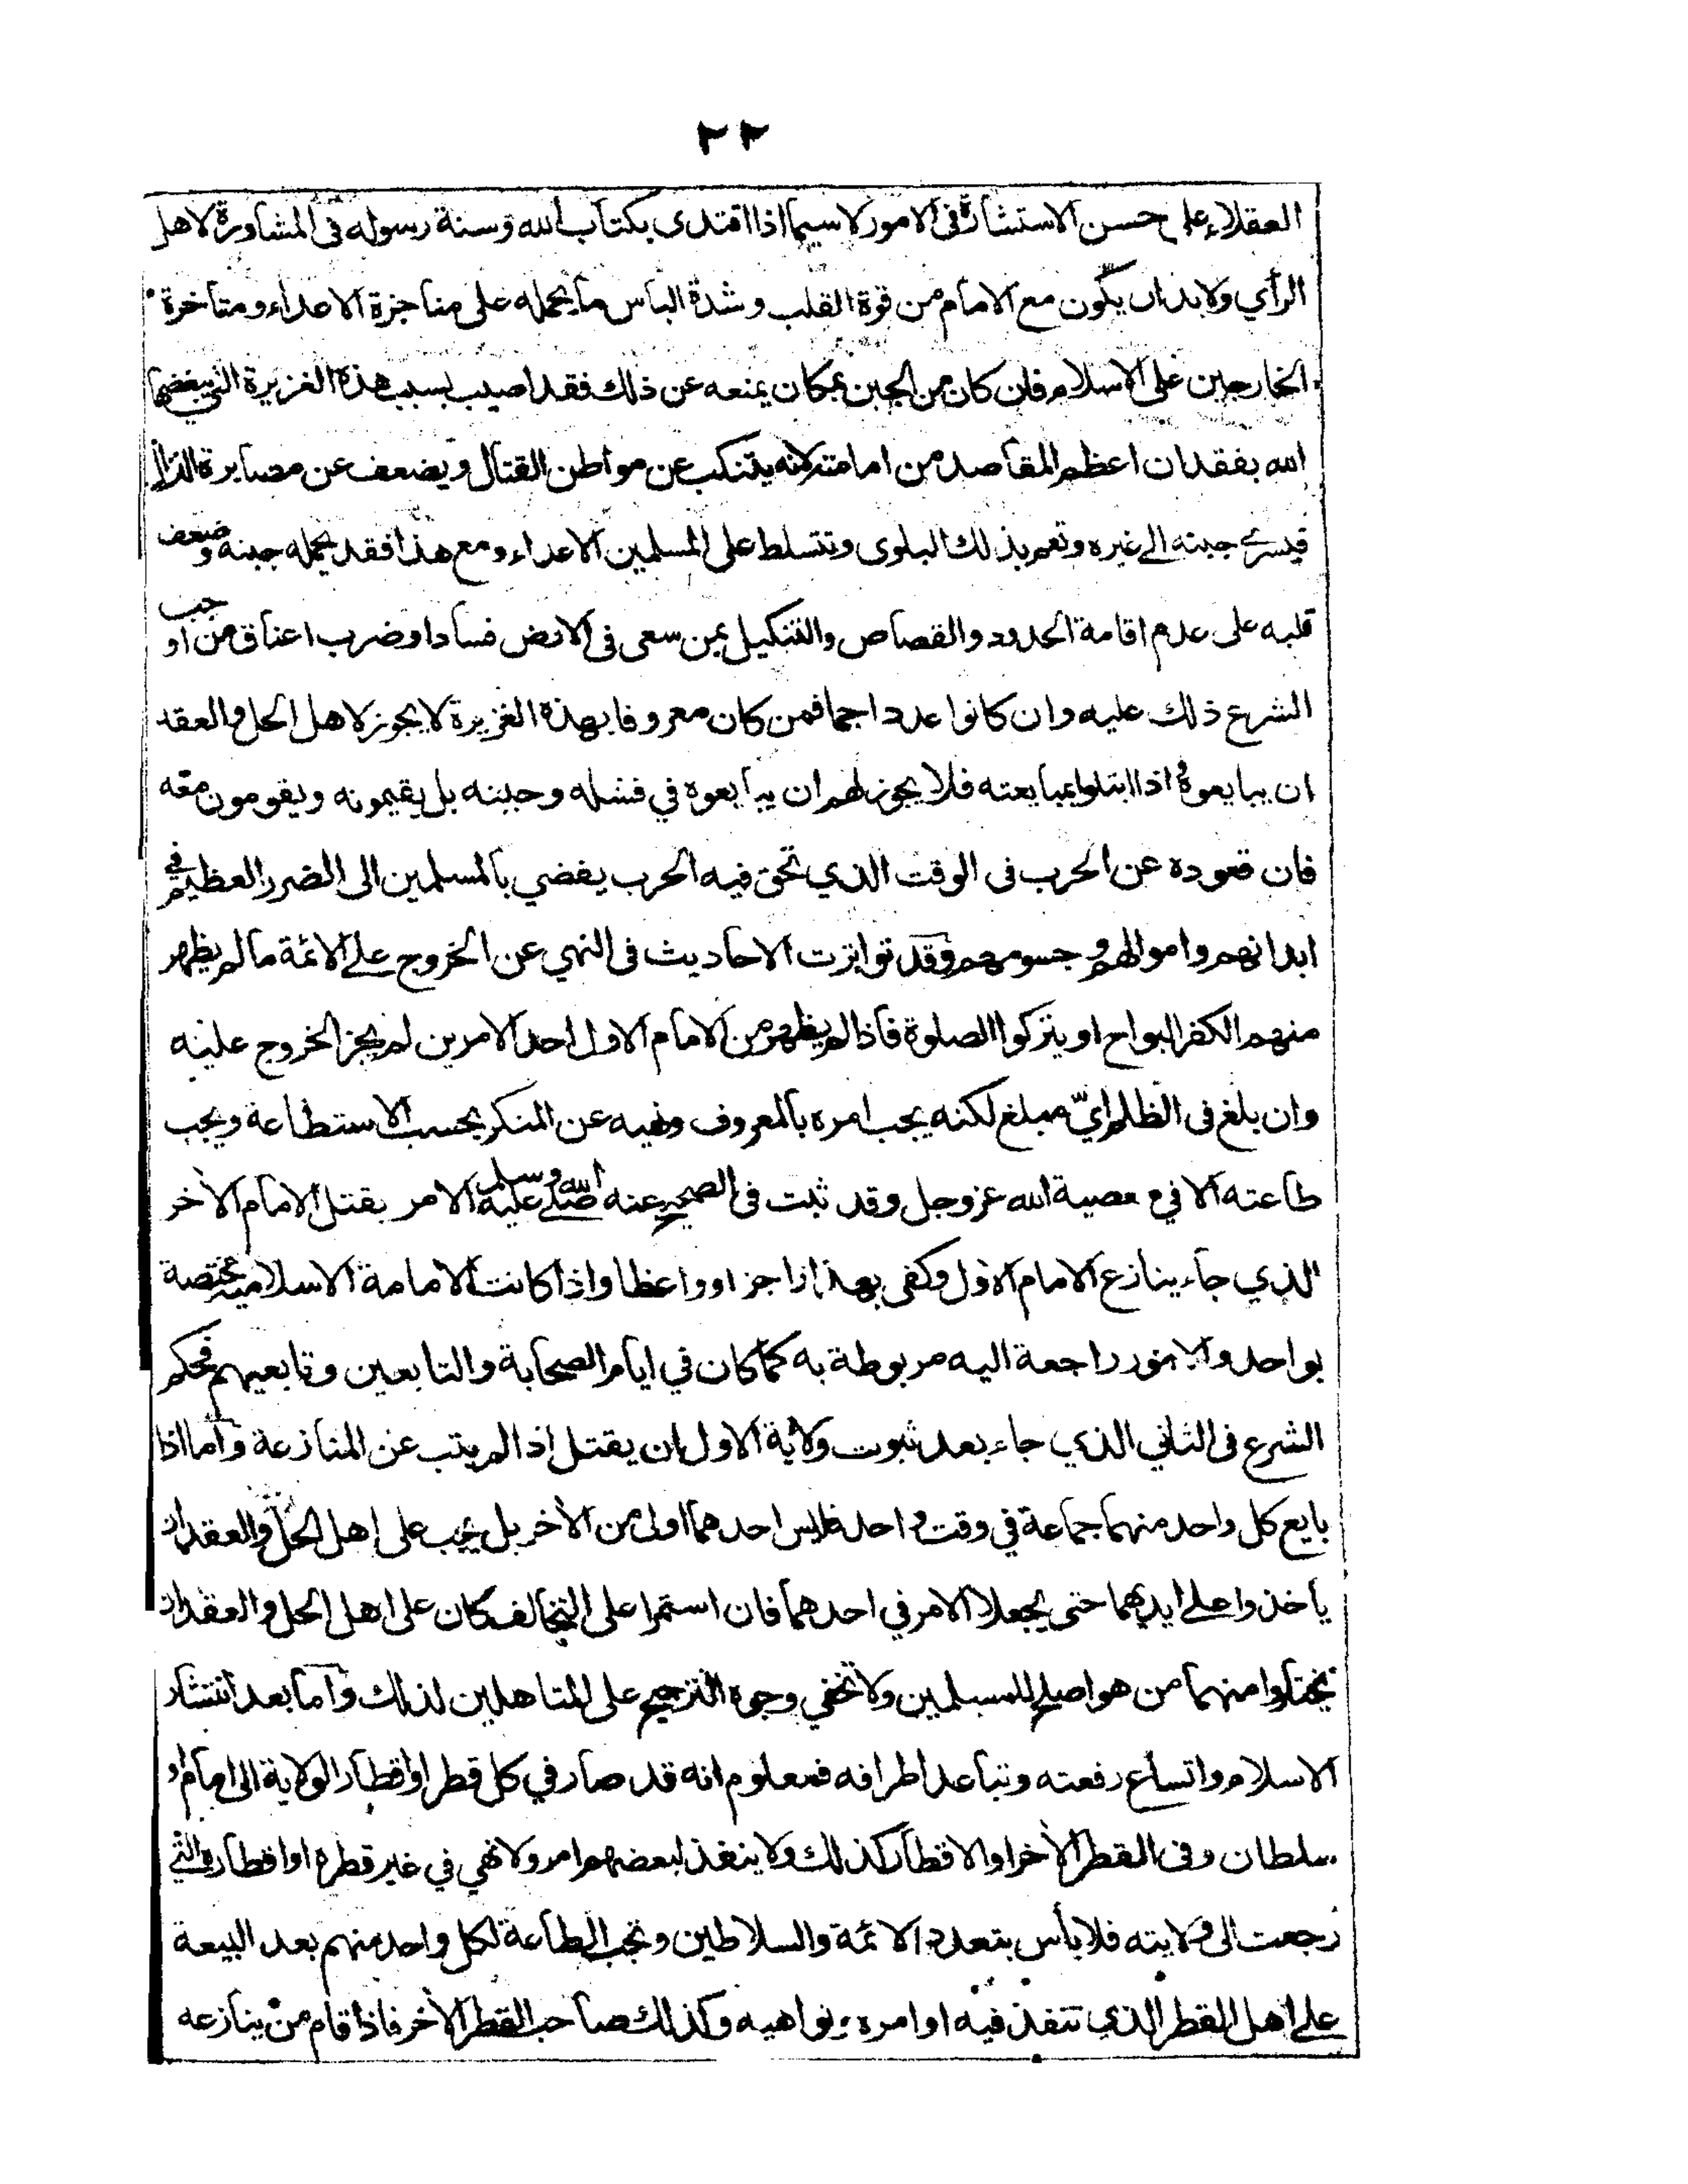 ٢٢
العقلاء على حسن الاستشارة فى الامور لاسيما اذا اقتدى بكتاب الله وسنة رسوله فى المشاورة لاهل
الرأي ولابد ان يكون مع الامام من قوة القلب وشدة الباس ما يحمله على مناجزة الاعداء ومتاخرة
الخارجين على الاسلام فان كان من الجبن بمكان يمنعه عن ذلك فقد اصيب بسبب هذه الغزيرة التي يبغضها
الله بفقدان اعظم المقاصد من امامته لانه يتنكب عن مواطن القتال ويضعف عن مصابرة النزال
فيسري جبنه الى غيره وتعم بذلك البلوى وتتسلط على المسلمين الاعداء ومع هذا فقد يحمله جبنه وضعف
قلبه على عدم اقامة الحدود والقصاص والتنكيل بمن سعى فى الارض فسادا وضرب اعناق من اوجب
الشرع ذلك عليه وان كانوا عددا جما فمن كان معروفا بهذه الغزيرة لا يجوز لاهل الحل والعقد
ان يبايعوه واذا ابتلوا بمبايعته فلا يجوز لهم ان يبايعوه في فشله وجبنه بل يقيمونه ويقومون معه
فان قعوده عن الحرب فى الوقت الذي تحق فيه الحرب يفضي بالمسلمين الى الضرر العظيم في
ابدانهم واموالهم وجسومهم وقد تواترت الاحاديث فى النهي عن الخروج على الائمة ما لم يظهر
منهم الكفر البواح او يتركوا الصلوة فاذا لم يظهر من الامام الاول احد الامرين لم يجز الخروج عليه
وان بلغ فى الظلم ايّ مبلغ لكنه يجب امره بالمعروف ونهيه عن المنكر بحسب الاستطاعة ويجب
طاعته الا في معصية الله عز وجل وقد ثبت فى الصحيح عنه صلى الله عليه وسلم الامر بقتل الامام الأخر
الذي جاء ينازع الامام الاول وكفى بهذا زاجرا وواعظا واذا كانت الامامة الاسلامية مختصة
بواحد والامور راجعة اليه مربوطة به كما كان في ايام الصحابة والتابعين وتابعيهم فحكم
الشرع فى الثاني الذي جاء بعد ثبوت ولاية الاول ان يقتل اذا لم يتب عن المنازعة واما اذا
بايع كل واحد منهما جماعة في وقت واحد فليس احدهما اولى من الأخر بل يجب على اهل الحل والعقد ان
يأخذوا على ايديهما حتى يجعلا الامر في احدهما فان استمرا على التخالف كان على اهل الحل والعقد ان
يختاروا منهما من هو اصلح للمسلمين ولا تخفي وجوه الترجيح على المتاهلين لذلك واما بعد انتشار
الاسلام واتساع رفعته وتباعد اطرافه فمعلوم انه قد صار في كل قطر او اقطار الولاية الى امام او
سلطان وفى القطر الأخر او الاقطار كذلك ولا ينفذ لبعضهم امر ولا نهي في غير قطره او اقطاره التي
رجعت الى ولايته فلا بأس بتعدد الائمة والسلاطين وتجب الطاعة لكل واحد منهم بعد البيعة
على اهل القطر الذي تنفذ فيه اوامره ونواهيه وكذلك صاحب القطر الأخر فاذا قام من ينازعه